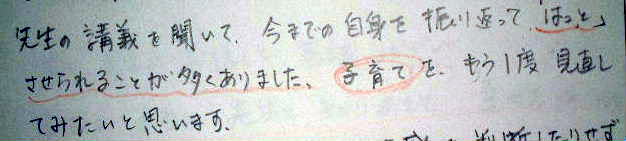 先生の講義を聞いて、今までの自身を振り返って、はっと」
させられることが多くありました、子育てを、もう1度 見直し
てみたいと思います。
判断したりせず